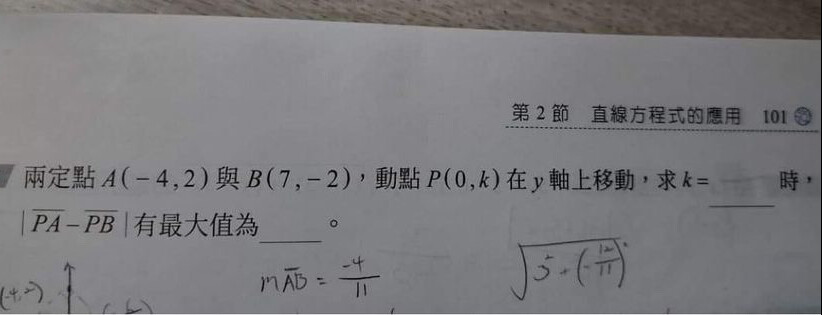 第 2 節 直線方程式的應用 101
兩定點 A(−4,2) 與 B(7,−2),動點 P(0,k) 在 y 軸上移動,求 k= ____ 時,
|PA−PB| 有最大值為____。
mAB = -4/11
√(3²+(-12/11)²)
(-4,2)